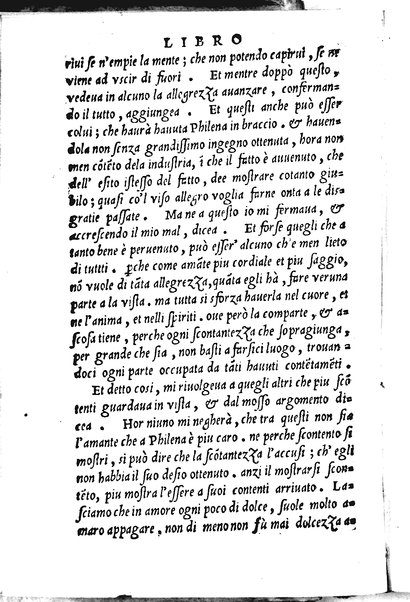 LIBRO
riui se n'empie la mente; che non potendo capirui, se ne
viene ad vscir di fuori. Et mentre doppò questo,
vedeua in alcuno la allegrezza auanzare, conferman-
do il tutto, aggiungea. Et questi anche può esser
colui; che haurà hauuta Philena in braccio. & hauen-
dola non senza grandissimo ingegno ottenuta, hora non
men cõtẽto dela industria, ĩ che il fatto è auuenuto, che
dell' esito istesso del fatto, dee mostrare cotanto giu-
bilo; quasi co'l viso allegro voglia farne onta a le dis-
gratie passate. Ma ne a questo io mi fermaua, &
accrescendo il mio mal, dicea. Et forse quegli che a
tanto bene è peruenuto, può esser' alcuno ch'è men lieto
di tuttti. ꝑche come amãte piu cordiale et piu saggio,
nõ vuole di tãta allegrezza, quãta egli hà, fare veruna
parte a la vista. ma tutta si sforza hauerla nel cuore, et
ne l'anima, et nelli spiriti. oue però la comparte, & a-
scosa tiene, perche ogni scontantezza che sopragiunga,
per grande che sia, non basti a farsici luogo, trouan-
doci ogni parte occupata da tãti hauuti contẽtamẽti.
Et detto cosi, mi riuolgeua a quegli altri che piu scõ
tenti guardaua in vista, & dal mosso argomento di-
cea. Hor niuno mi negherà, che tra questi non sia
l'amante che a Philena è piu caro. ne perche scontento si
mostri, si può dire che la scõtantezza l'accusi; ch' egli
non habbia il suo desio ottenuto. anzi il mostrarsi scon-
tẽto, piu mostra l'essere a suoi contenti arriuato. La-
sciamo che in amore ogni poco di dolce, suole molto a-
maro appagare, non di meno non fù mai dolcezza a-